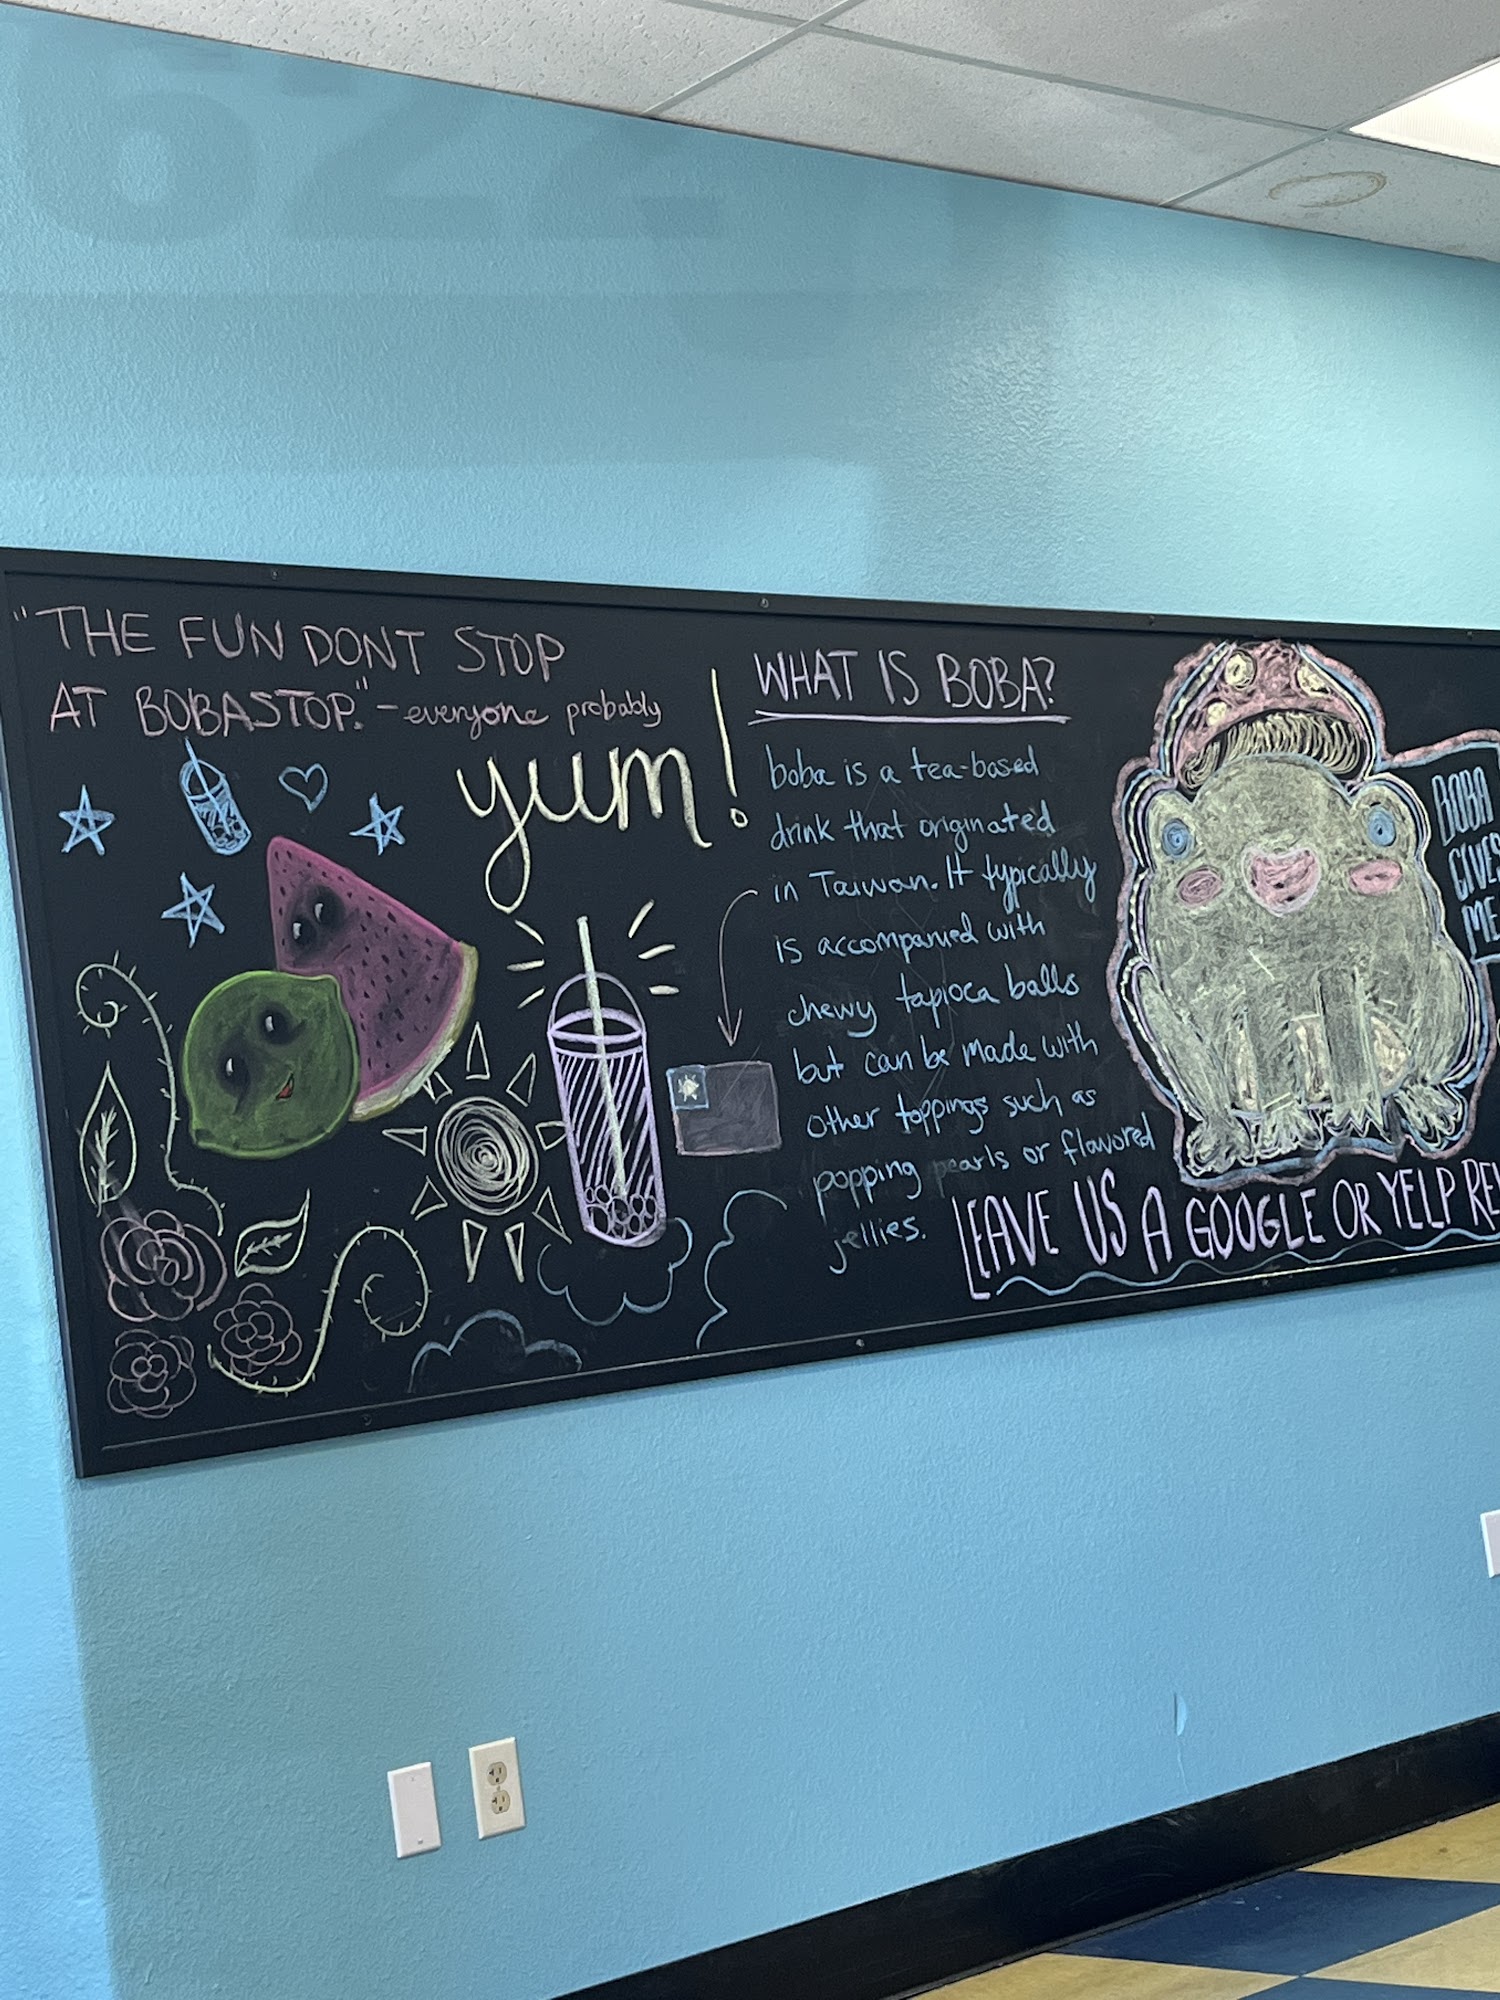 "THE FUN DONT STOP
AT BOBASTOP." - everyone probably
yum!
WHAT IS BOBA?
boba is a tea-based
drink that originated
in Taiwan. It typically
is accompanied with
chewy tapioca balls
but can be made with
other toppings such as
popping pearls or flavored
jellies.
BOBA
GIVES
ME
LEAVE US A GOOGLE OR YELP RE